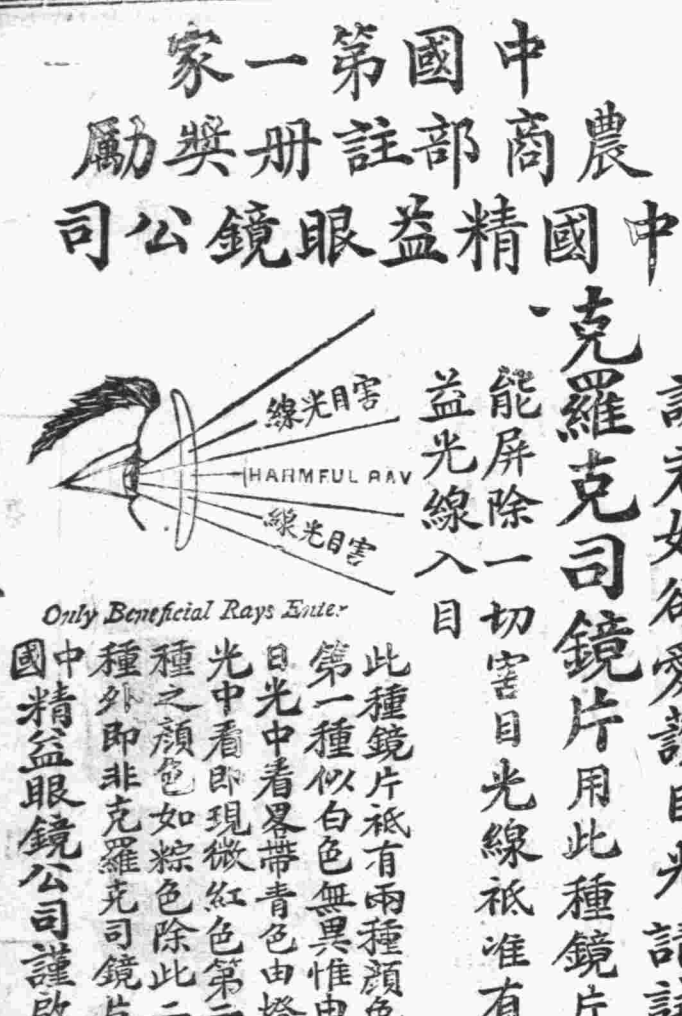 中國第一家
農商部註册獎勵
中國精益眼鏡公司
克羅克司鏡片用此種鏡片
能屏除一切害目光線祗准有
益光線入目
害目光線
HARMFUL RAY
害目光線
Only Beneficial Rays Enter
此種鏡片祗有兩種顏色
第一種似白色無異惟由
日光中看畧帶青色由燈
光中看即現微紅色第二
種之顏色如粽色除此二
種外即非克羅克司鏡片
中國精益眼鏡公司謹啟